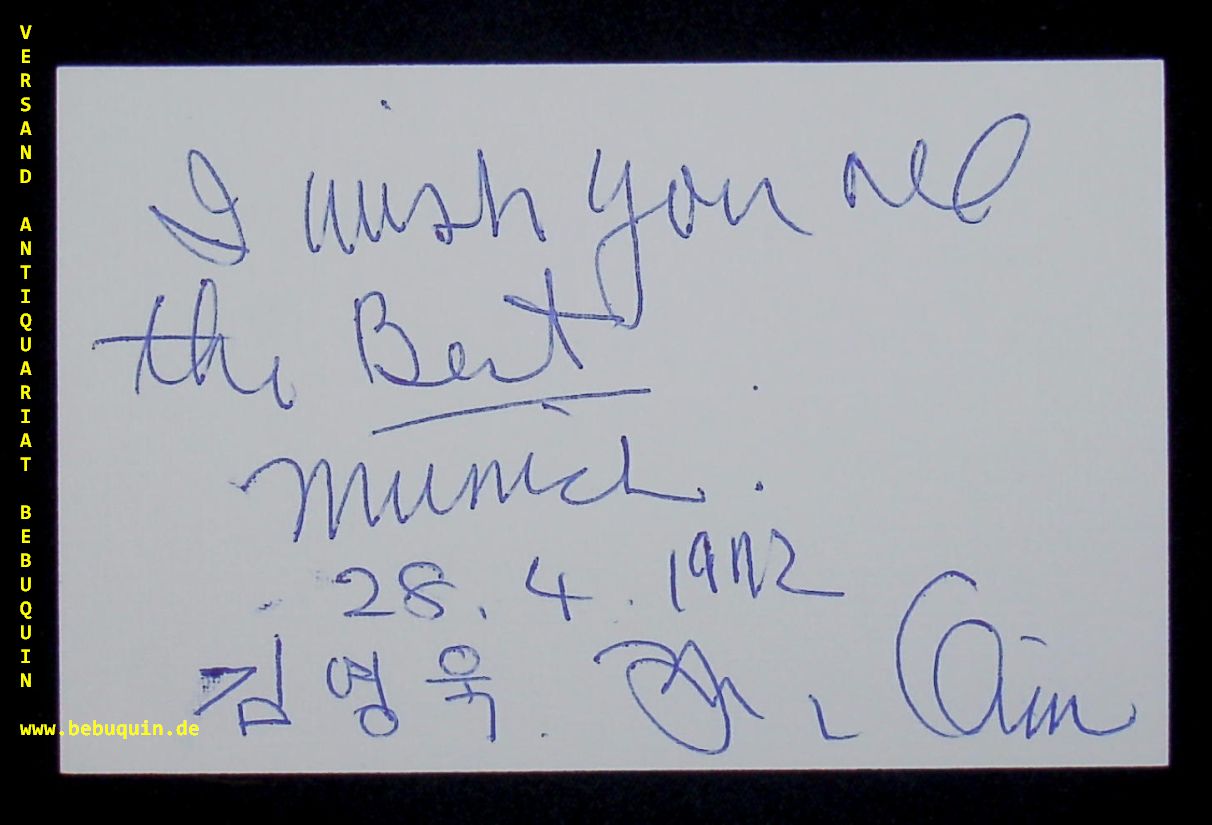 VERSAND ANTIQUARIAT BEBUQUIN
www.bebuquin.de
I wish you all
the Best
Munich.
28. 4. 1972
김영욱.